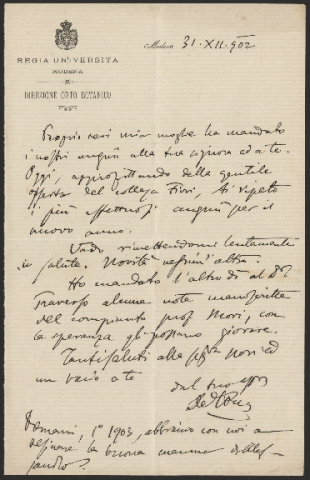 REGIA UNIVERSITÀ
MODENA
DIREZIONE ORTO BOTANICO
Modena 31-XII-902
Proprio ieri mia moglie ha mandato
i nostri auguri alla tua signora ed a te.
Oggi, approfittando della gentile
offerta del collega Fiori, ti ripeto
i più affettuosi auguri per il
nuovo anno.
Vado rimettendomi lentamente
in salute. Novità nessun'altra.
Ho mandato l'altro dì al Dr
Traverso alcune note manoscritte
del compianto prof. Mori, con
la speranza gli possano giovare.
Tanti saluti alla Sigra Nori ed
un bacio a te
dal tuo
Domani, 1º 1903, abbiamo con noi a
desinare la buona mamma di